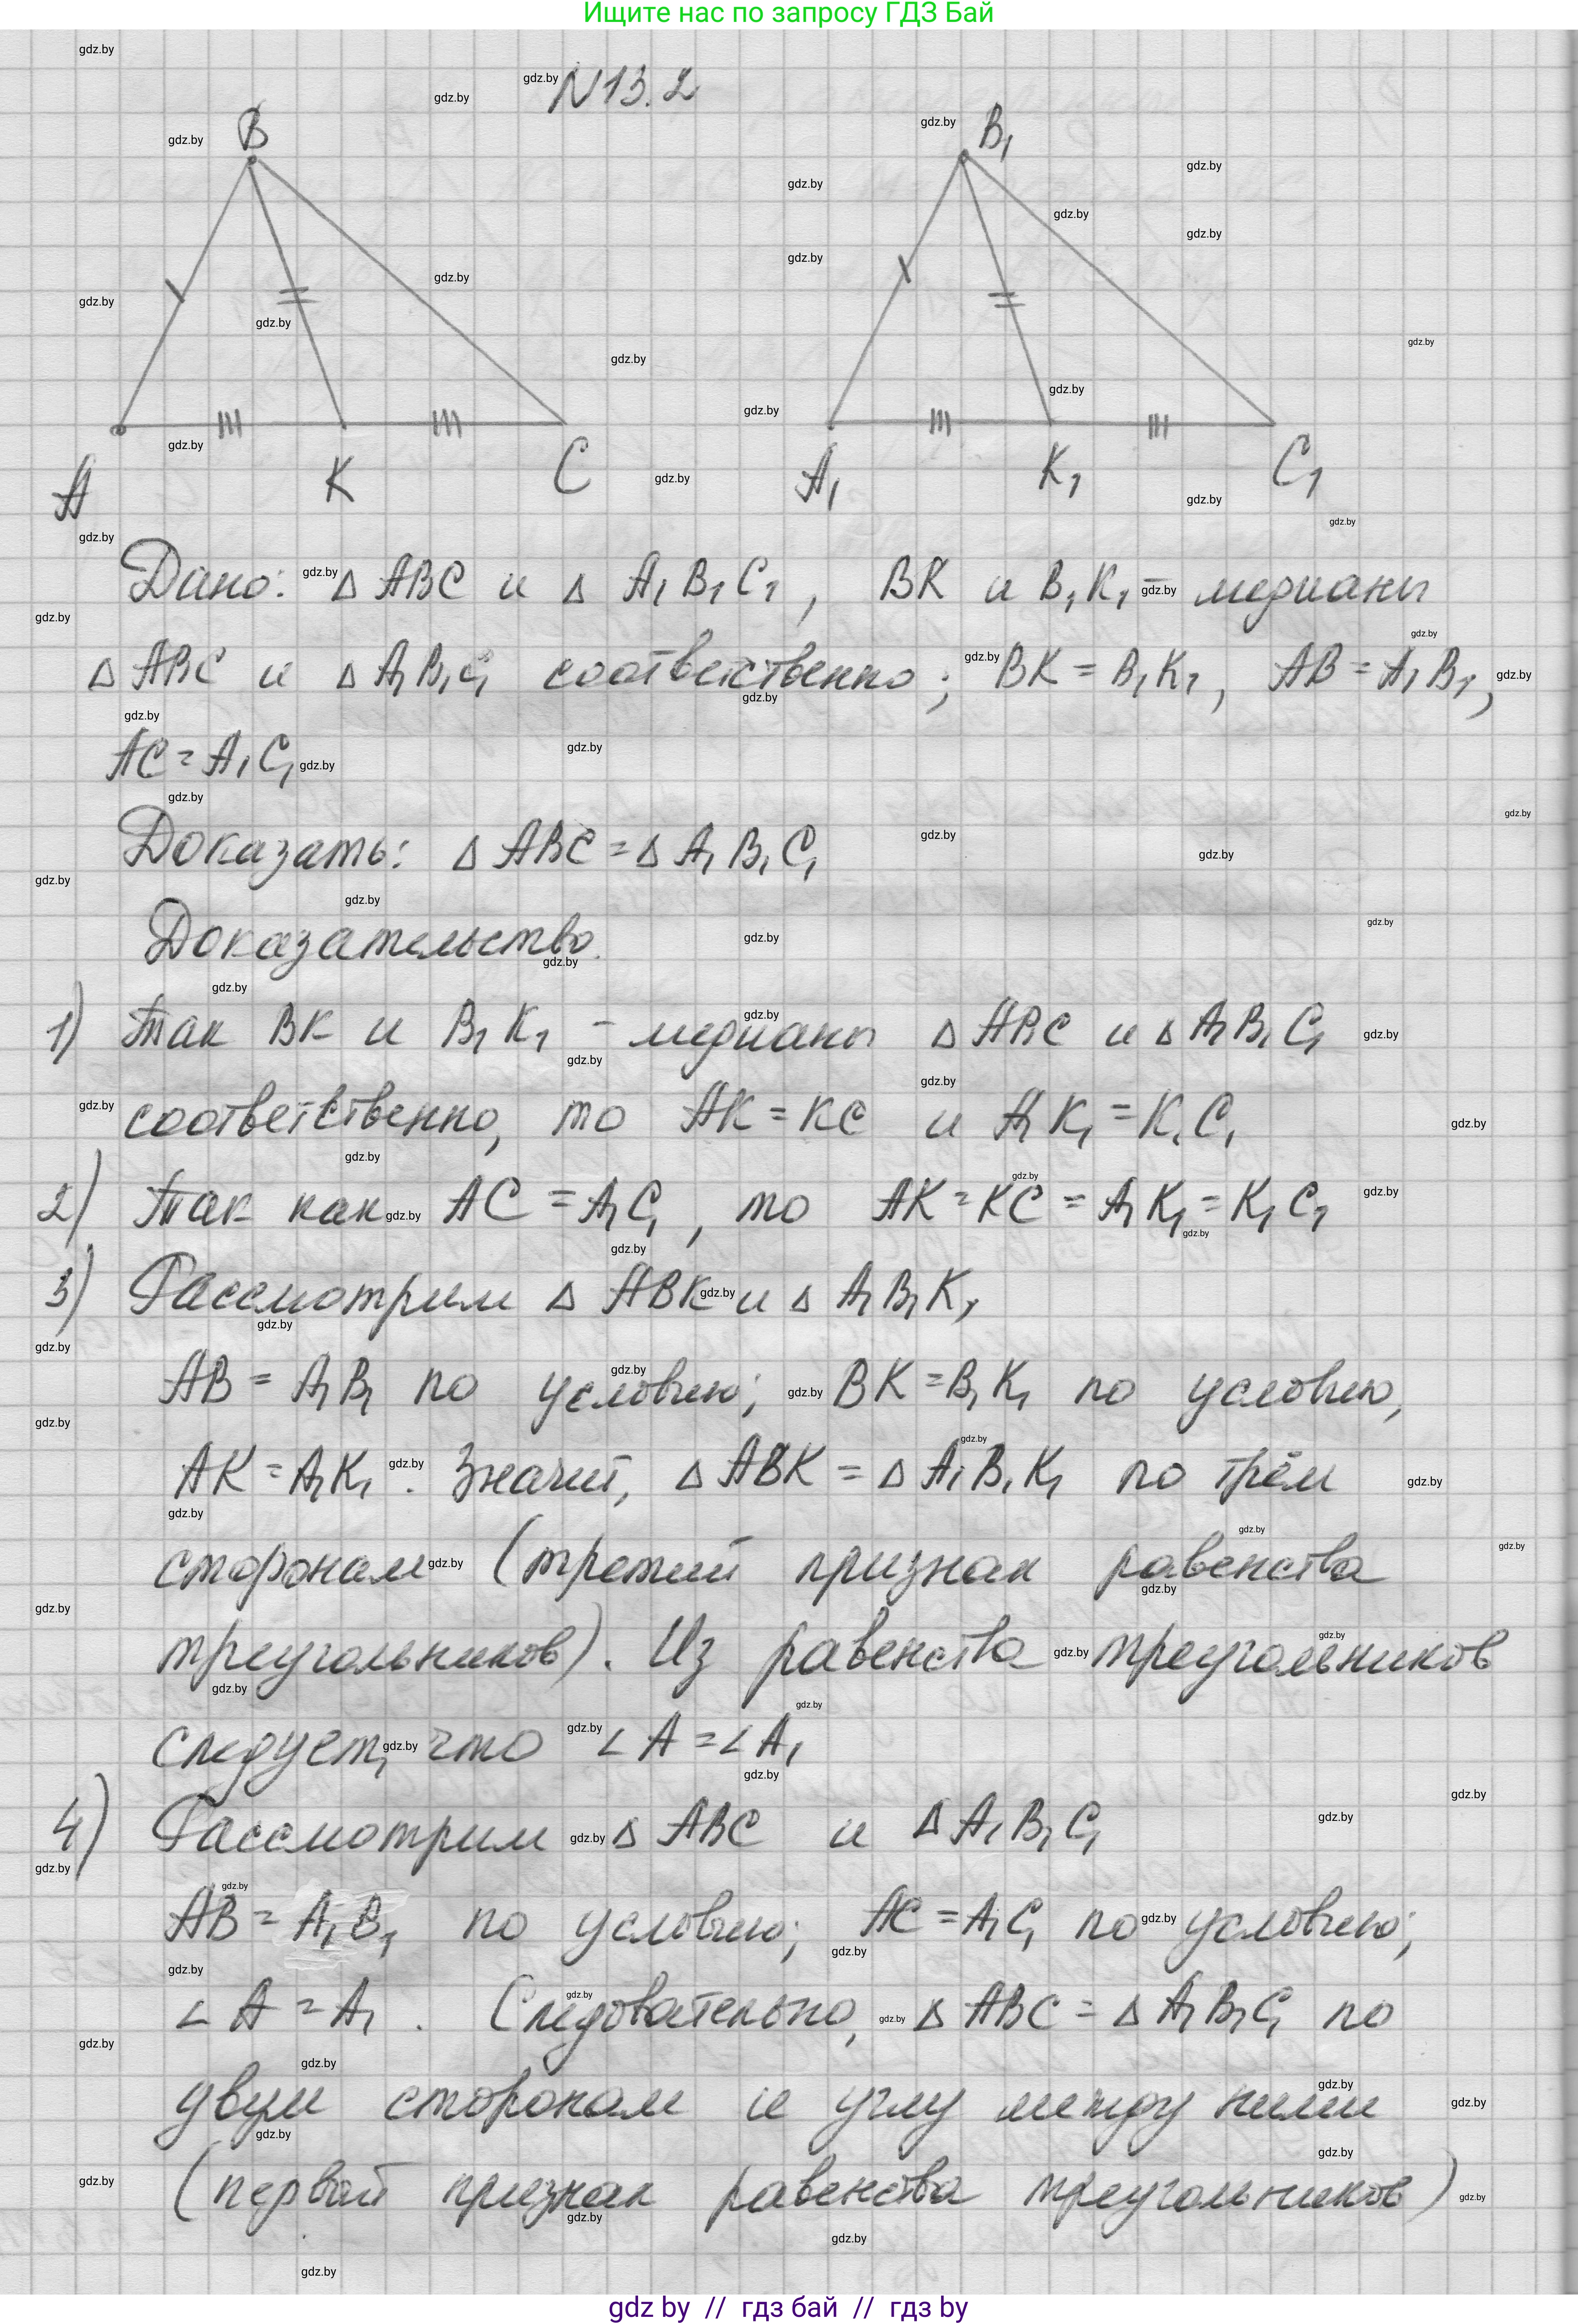 Ищите нас по запросу ГДЗ Бай
N13.2
B B₁
A K C A₁ K₁ C₁
Дано: △ ABC и △ A₁B₁C₁, BK и B₁K₁ - медианы
△ ABC и △ A₁B₁C₁ соответственно; BK = B₁K₁, AB = A₁B₁,
AC = A₁C₁
Доказать: △ ABC = △ A₁B₁C₁
Доказательство.
1) Так BK и B₁K₁ - медианы △ ABC и △ A₁B₁C₁
соответственно, то AK = KC и A₁K₁ = K₁C₁
2) Так как AC = A₁C₁, то AK = KC = A₁K₁ = K₁C₁
3) Рассмотрим △ ABK и △ A₁B₁K₁
AB = A₁B₁ по условию; BK = B₁K₁ по условию,
AK = A₁K₁. Значит, △ ABK = △ A₁B₁K₁ по трём
сторонам (третий признак равенства
треугольников). Из равенства треугольников
следует, что ∠A = ∠A₁
4) Рассмотрим △ ABC и △ A₁B₁C₁
AB = A₁B₁ по условию; AC = A₁C₁ по условию;
∠A = A₁. Следовательно, △ ABC = △ A₁B₁C₁ по
двум сторонам и углу между ними
(первый признак равенства треугольников)
gdz by // гдз бай // гдз by